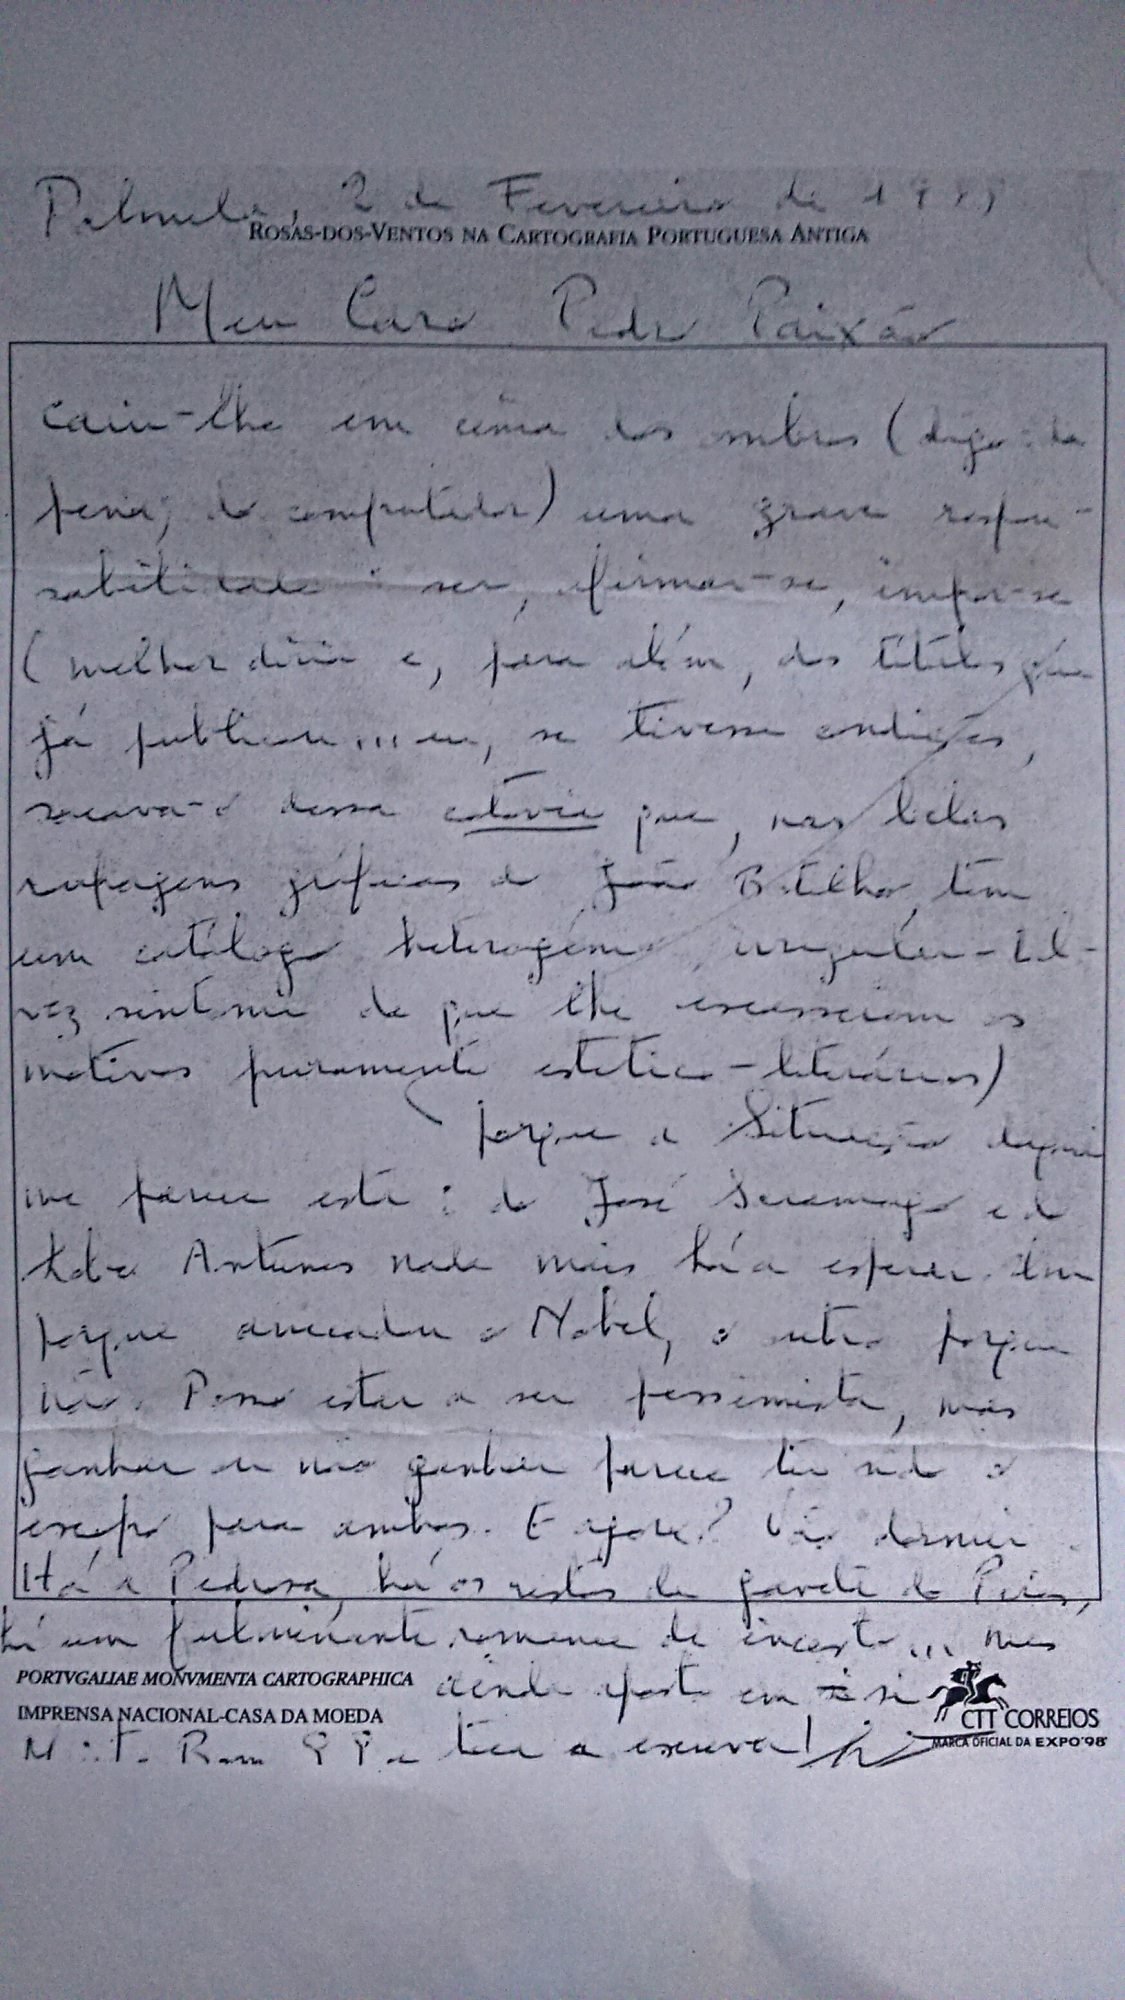 Palmela, 2 de Fevereiro de 1999
ROSAS-DOS-VENTOS NA CARTOGRAFIA PORTUGUESA ANTIGA
Meu Caro Pedro Paixão
caiu-lhe em cima dos ombros (digo: da
pena, do computador) uma grave respon-
sabilidade: ser, afirmar-se, impor-se
(melhor diria e, para além, dos títulos que
já publicou... eu, se tivesse condições,
sacava-o dessa que, nas belas
roupagens gráficas do João Botelho, tem
um catálogo heterogéneo, irregular - tal-
vez sintoma de que lhe escasseiam os
motivos puramente estetico-literários)
porque a situação
me parece esta: do José Saramago e do
Lobo Antunes nada mais há a esperar. Um
porque arrecadou o Nobel, o outro porque
não. Posso estar a ser pessimista, mas
ganhar ou não ganhar parece ter sido o
escopo para ambos. E agora? Vão dormir.
Há a Pedrosa, há os restos de gaveta do Pires,
há um fulminante romance de incesto... mas
PORTVGALIAE MONVMENTA CARTOGRAPHICA
ainda aposto em si
IMPRENSA NACIONAL-CASA DA MOEDA
CTT CORREIOS
MARCA OFICIAL DA EXPO'98
a escreva!